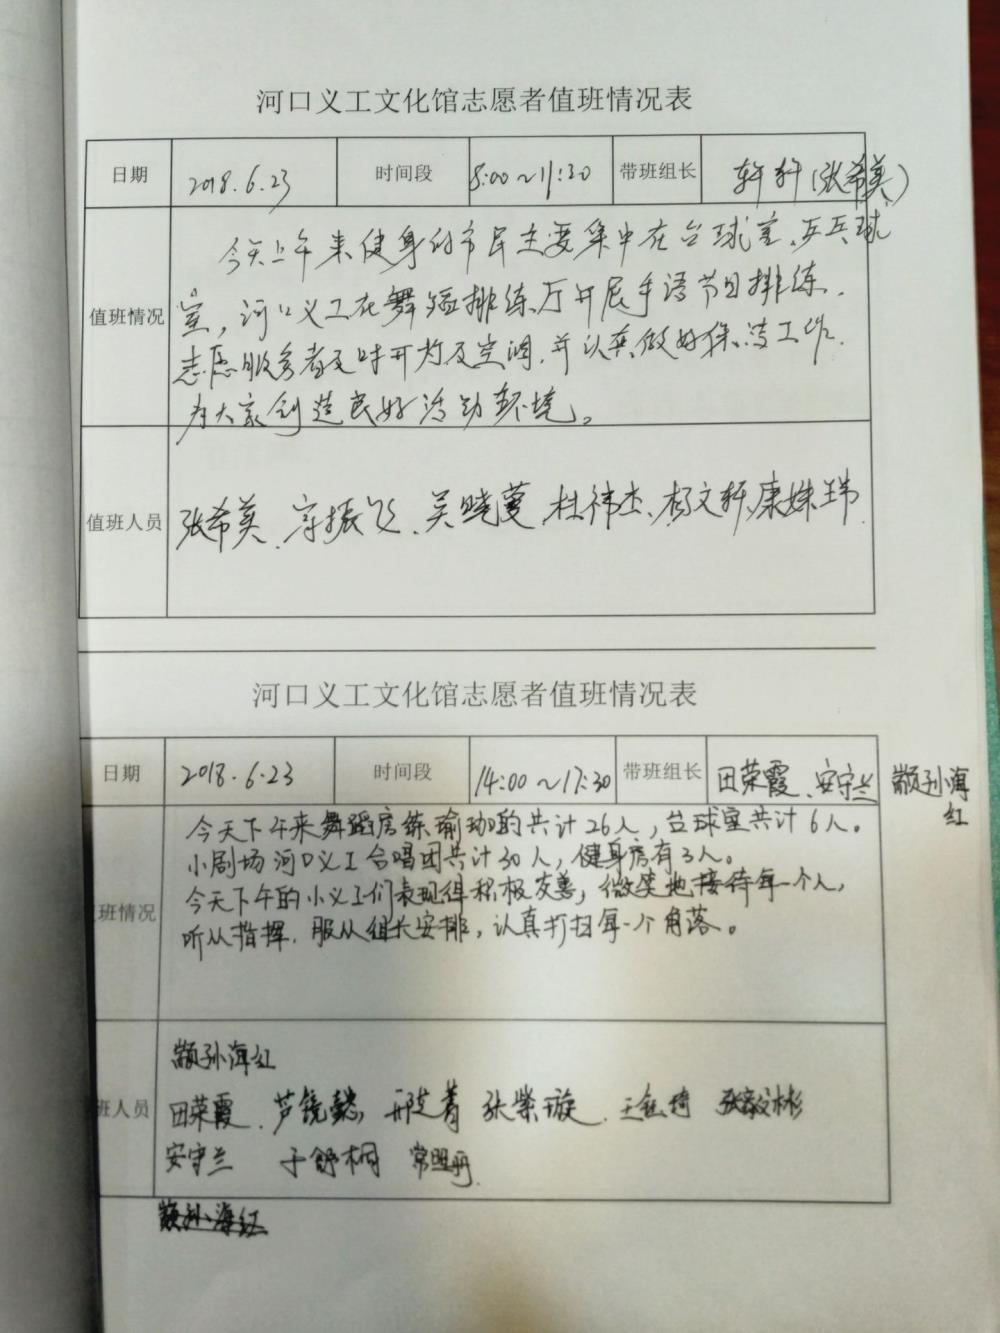 河口义工文化馆志愿者值班情况表
日期 2018.6.23 时间段 8:00~11:30 带班组长 轩轩(张希美)
今天上午来健身的市民主要集中在台球室、乒乓球
值班情况 室,河口义工在舞蹈排练厅开展手语节目排练.
志愿服务者及时开灯及空调,并认真做好保洁工作.
为大家创造良好活动环境。
值班人员 张希美、振飞、吴晓蔓、杜祎杰、杨文轩、康姝玮
河口义工文化馆志愿者值班情况表
日期 2018.6.23 时间段 14:00~17:30 带班组长 田荣霞、安守兰 颛孙海
红
今天下午来舞蹈房练瑜珈的共计26人,台球室共计6人。
小剧场河口义工合唱团共计30人,健身房有3人。
今天下午的小义工们表现得积极友善,微笑地接待每一个人,
班情况 听从指挥.服从组长安排,认真打扫每一个角落。
颛孙海红
班人员 田荣霞、芦镜懿 邢艾菁 张紫璇、王钰琦 张毅彬
安守兰 于舒桐 常盟丹
颛孙海红